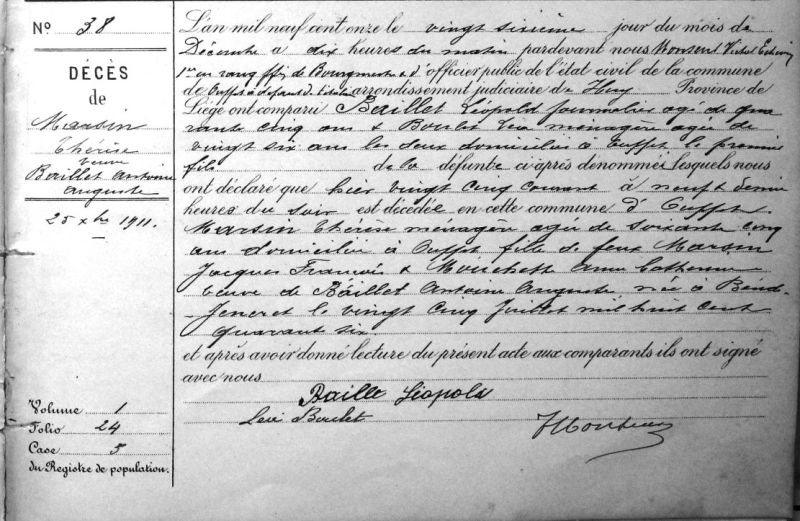 N° 38
DÉCÈS
de
Marsin
Thérèse
veuve
Baillet Antoine
Auguste
25 xbre 1911.
Volume 1
Folio 24
Case 5
du Registre de population.
L'an mil neuf cent onze le vingt sixième jour du mois de
Décembre à dix heures du matin pardevant nous Monseur Victor Echevin
1er en rang ffs de Bourgmestre & d'officier public de l'état civil de la commune
de Ouffet à défaut de titulaire arrondissement judiciaire de Huy Province de
Liége ont comparu Baillet Léopold journalier agé de qua
rante cinq ans & Boulet Léa ménagère agée de
vingt six ans les deux domiciliés à Ouffet le premier
fils de la défunte ci après dénommée lesquels nous
ont déclaré que hier vingt cinq courant à neuf & demie
heures du soir est décédée en cette commune d'Ouffet
Marsin Thérèse ménagère agée de soixante cinq
ans domiciliée à Ouffet fille de feux Marsin
Jacques François & Mouchette Anne Catherine
veuve de Baillet Antoine Auguste née à Bende
-Jeneret le vingt cinq Juillet mil huit cent
quarant six
et après avoir donné lecture du présent acte aux comparants ils ont signé
avec nous
Baillet Léopold
Léa Boulet